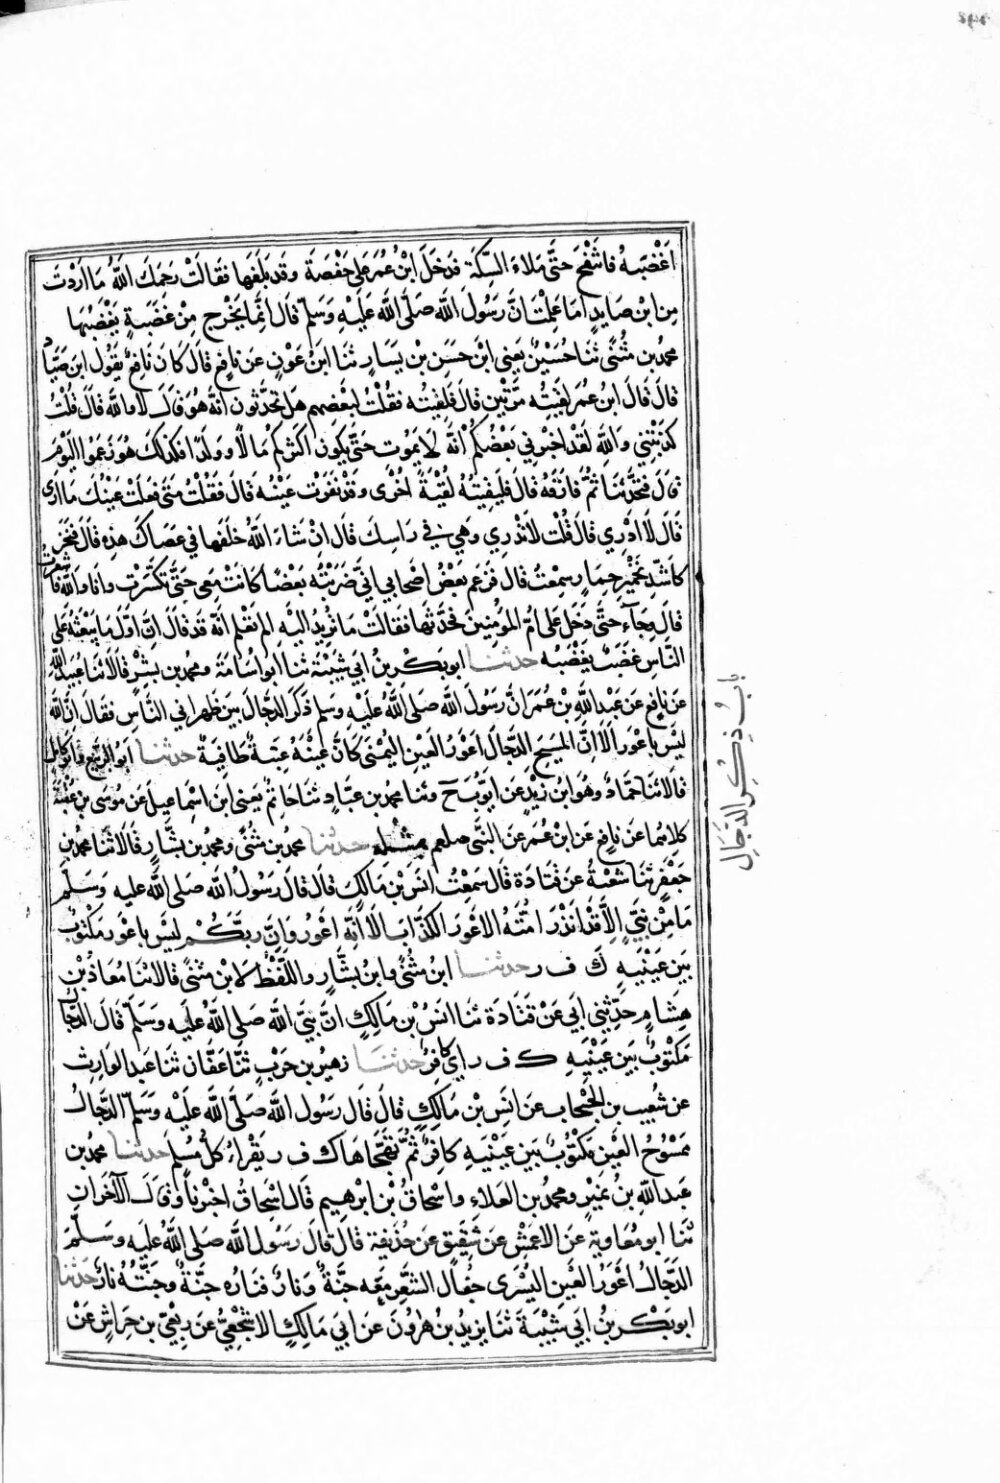 اَغْضَبَهُ فانْتَفَخَ حَتَّى مَلاءَ السِّكَةَ فَدخَلَ ابْنُ عُمَرَ عَلى حَفْصَةَ وَقَد بَلَغَها فَقالَتْ رَحِمَكَ اللهُ مَا اَرَدْتَ
مِن ابْن صَايِدٍ اَمَا عَلِمْتَ اَنَّ رَسُولَ اللهِ صَلَّى اللهُ عَلَيْهِ وَسَلَّم قَالَ اِنَّما يَخْرُج مِنْ غَضَبَةٍ يَغْضَبُهَا
محمد بن مُثَنى ثَنا حُسَيْنٌ يَعني ابْنَ حَسَن بْن يَسَارٍ ثَنا ابنُ عَوْنٍ عَن نَافِعٍ قالَ كَانَ نَافِعٌ يَقُولُ ابن صَيَّاد
قَالَ قَالَ ابنُ عُمَر لَقِيتُه مَرَّتَيْن قَال فَلَقِيتُه فَقُلْت لِبَعْضِهِم هَل تَحَدَّثُون اَنهُ هُوَ قَالَ لا وَالله قَال قُلْتُ
كَذَبْتَنِي واللهِ لَقَد اَخبَرَني بَعْضُكُم اَنَّه لا يَمُوت حَتّى يَكونَ اَكثَركُم مَالًا وَ وَلَدًا فَكَذلكَ هُوَ زَعَموا اليَوْمَ
قَالَ فَتَحَدَّثنا ثُمَّ فَارَقْتُهُ قَالَ فَلَقِيْتُهُ لُقْيَةً اُخْرٰى وَقَدْ نَفَرَت عَيْنُه قَالَ فَقُلْتُ مَتَى فَعَلَتْ عَيْنُكَ مَا اَرَى
قَالَ لا اَدْرِي قَالَ قُلْت لا تَدْرِي وَهِي فِي رَاسِكَ قَال اِنْ شَاءَ اللهُ خَلَقَها في عَصَاكَ هذِه قَالَ فَنَخَرَ
كَاَشَدِّ نَخيْرِ حِمَارٍ سَمِعْتُ قَال فَزَعم بَعْضُ اَصْحابي اَني ضَرَبْتُه بعَصًا كَانَتْ مَعي حَتَّى تكَسَّرَتْ وانَا وَاللهِ فَمَا شَعَرتُ
قَالَ وجَاءَ حَتَّى دَخَلَ عَلَى اُمِّ المُؤمِنِينَ فحَدَّثَها فَقالَتْ مَا تُريدُ اِليْهِ اَلم تَعْلَم اَنّه قَد قَال اِنَّ اوَّلَ مَا يَبْعَثُهُ عَلَى
النَّاسِ غَضَبٌ يَغْضَبُه حدثنا ابو بَكْر بنُ ابي شَيْبَة ثنا ابو اُسَامَةَ ومحمد بن بِشْرٍ قَالا ثَنا عُبَيْد اللهِ
عَن نَافِعٍ عَن عَبْدِ اللهِ بْن عُمَر اَنَّ رَسُولَ الله صَلى اللهُ عَلَيْهِ وَسلم ذَكَرَ الدَّجّالَ بَيْنَ ظَهْرَاني النَّاسِ فَقال اِنَّ اللهَ
لَيْسَ باَعْورَ اَلَا اِنَّ المَسيحَ الدَّجّالَ اَعْوَرُ العَيْنِ اليُمْنَى كَانَّ عَيْنَهُ عِنَبَةٌ طَافِيَةٌ حدثنا ابُو الرَّبيعِ وابو كَامِلٍ
قَالا ثَنا حَمَّادٌ وهُوَ ابنُ زَيْدٍ عَن اَيّوبَ ح وثَنا محمد بن عَبّادٍ ثَنا حَاتِمٌ يَعني ابن اِسْمَاعِيلَ عَن مُوسَى بنِ عُقْبَةَ
كِلاهُما عَن نَافِعٍ عَن ابْن عُمَر عَن النَّبي صلعم مِثْلَه حدثنا محمد بن مُثَنَّى ومحمد بن بَشَّارٍ قَالا ثنا محمد بن
جَعْفَرٍ ثَنا شُعْبَةُ عَن قَتَادَة قَال سَمِعْتُ اَنَسَ بْن مَالِكٍ قَال قَالَ رَسُولُ الله صَلى اللهُ عليه وَسَلَّم
مَا مِنْ نبَيٍّ اِلاَّ قَدْ اَنْذَرَ امَّتَهُ الاَعْوَرَ الكَذَّابَ اَلا اِنّه اَعْوَرُ وَاِنَّ رَبَّكُمْ لَيْسَ بِاَعْورَ مَكْتُوبٌ
بَيْنَ عَيْنَيْهِ كَ ف ر حدثنا ابن مُثَنَّى وابنُ بَشَّارٍ واللَّفْظُ لاِبْنِ مُثَنى قَالا ثَنا مُعَاذُ بْن
هِشَامٍ حَدَّثَنِي اَبي عَنْ قَتَادَةَ ثَنا اَنَسُ بْن مَالِكٍ اَنَّ نَبِيَّ اللهِ صَلى اللهُ عَلَيه وَسَلَّم قَالَ الدَّجّالُ
مَكْتُوبٌ بَين عَيْنَيهِ ك ف ر اي كَافِرٌ حدثنا زهير بن حَرْبٍ ثَنَا عَفّان ثَنا عَبد الوَارِثِ
عن شُعَيب بن الحَبْحَابِ عَن اَنَسِ بْن مَالِكٍ قَالَ قَال رَسُول الله صَلَّى اللهُ عَلَيْه وَسَلَّم الدَّجَّالُ
مَمْسُوحُ العَيْنِ مَكْتُوبٌ بَيْنَ عَيْنَيهِ كَافِرٌ ثُمَّ تَهَجَّاهَا ك ف ر يَقْراءُ كُلُّ مُسْلِم حدثنا محمد بن
عَبد اللهِ بنُ نُمَيْرٍ ومحمد بن العَلاءِ واِسْحَاقُ بْن ابْرهِيم قَال اِسْحَاقُ اَخْبَرَنا وَقَالَ الآخَرَانِ
ثَنا ابو مُعَاوِيَةَ عَن الاَعْمَشِ عَن شَقِيقٍ عَن حُذَيفة قالَ قَالَ رَسُول الله صَلى اللهُ عَلَيه وَسلَّمَ
الدَّجَّالُ اَعْوَرُ العَيْنِ اليُسْرَى جُفَالُ الشَّعَرِ مَعَهُ جَنَّةٌ وَنَارٌ فَنَارُه جَنَّةٌ وجَنَّتُهُ نَارٌ حدثنا
ابو بَكْر بنُ اَبي شَيْبَةَ ثَنا يَزِيدُ بن هرُونَ عَن اَبي مَالِكٍ الاَشْجَعِيِّ عَن رِبْعِيّ بن حِرَاشٍ عَنْ
بابُ ذِكْرِ الدَّجّالِ